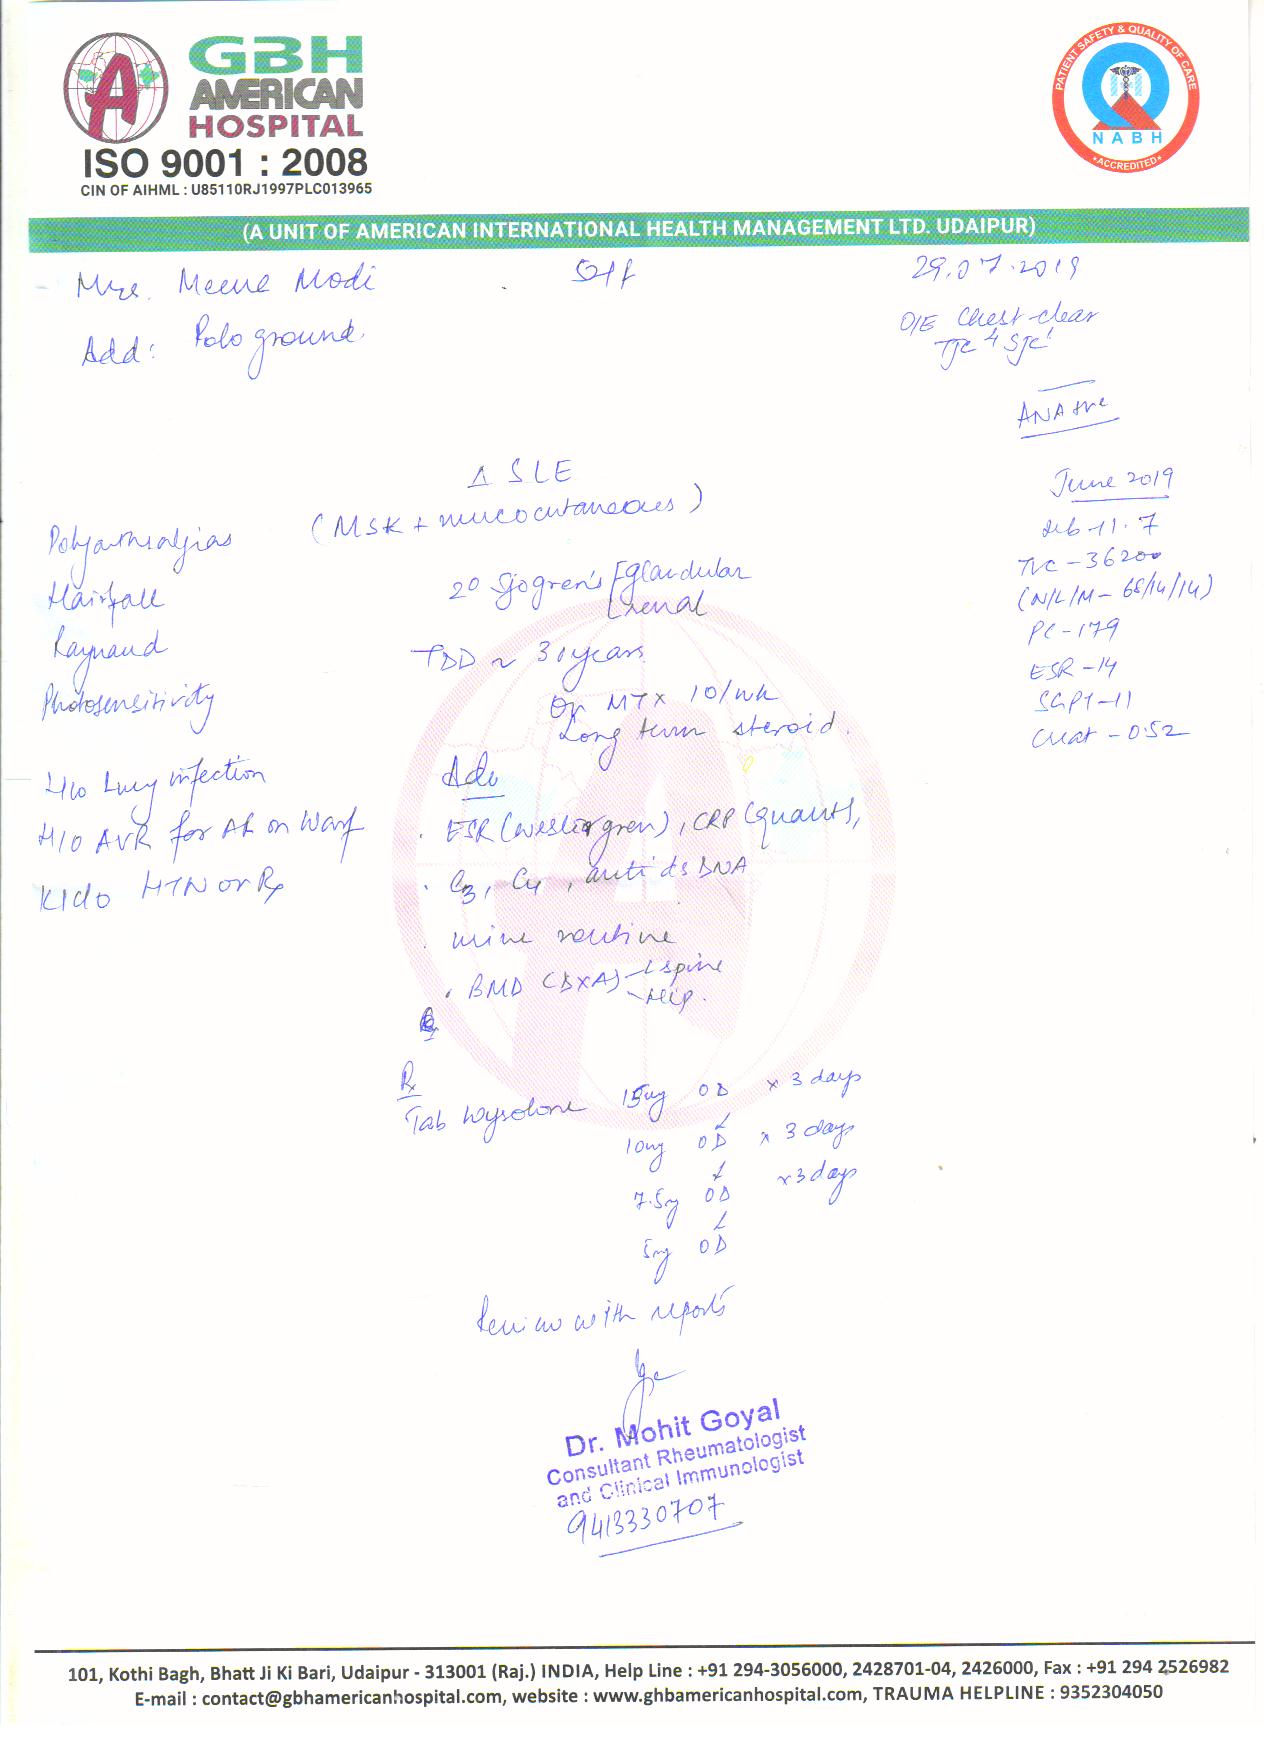 GBH
AMERICAN
HOSPITAL
ISO 9001 : 2008
CIN OF AIHML : U85110RJ1997PLC013965
PATIENT SAFETY & QUALITY OF CARE
NABH
•ACCREDITED•
(A UNIT OF AMERICAN INTERNATIONAL HEALTH MANAGEMENT LTD. UDAIPUR)
Mrs. Meena Modi
29.07.2019
Add: Polo ground
O/E Chest-clear
TJC 4 SJC 1
ANA +ve
Δ SLE
(MSK + mucocutaneous)
2° Sjogren's glandular
renal
TDD ~ 30 years
On MTX 10/wk
Long term steroid.
Polyarthralgias
Hairfall
Raynaud
Photosensitivity
H/o Lung infection
H/O AVR for AR on Warf
K/c/o HTN on Rx
June 2019
Hb-11.7
TLC-36200
(N/L/M- 68/14/14)
PC-179
ESR-14
SGPT-11
Creat-0.52
Adv
. ESR (westergren), CRP (quant),
. C3, C4, anti ds DNA
. urine routine
. BMD (DXA) - L spine
- Hip.
Rx
Tab Wysolone 15mg OD x 3 days
↓
10mg OD x 3 days
↓
7.5mg OD x 3 days
↓
5mg OD
Review with reports
Dr. Mohit Goyal
Consultant Rheumatologist
and Clinical Immunologist
9413330707
101, Kothi Bagh, Bhatt Ji Ki Bari, Udaipur - 313001 (Raj.) INDIA, Help Line : +91 294-3056000, 2428701-04, 2426000, Fax : +91 294 2526982
E-mail : contact@gbhamericanhospital.com, website : www.ghbamericanhospital.com, TRAUMA HELPLINE : 9352304050